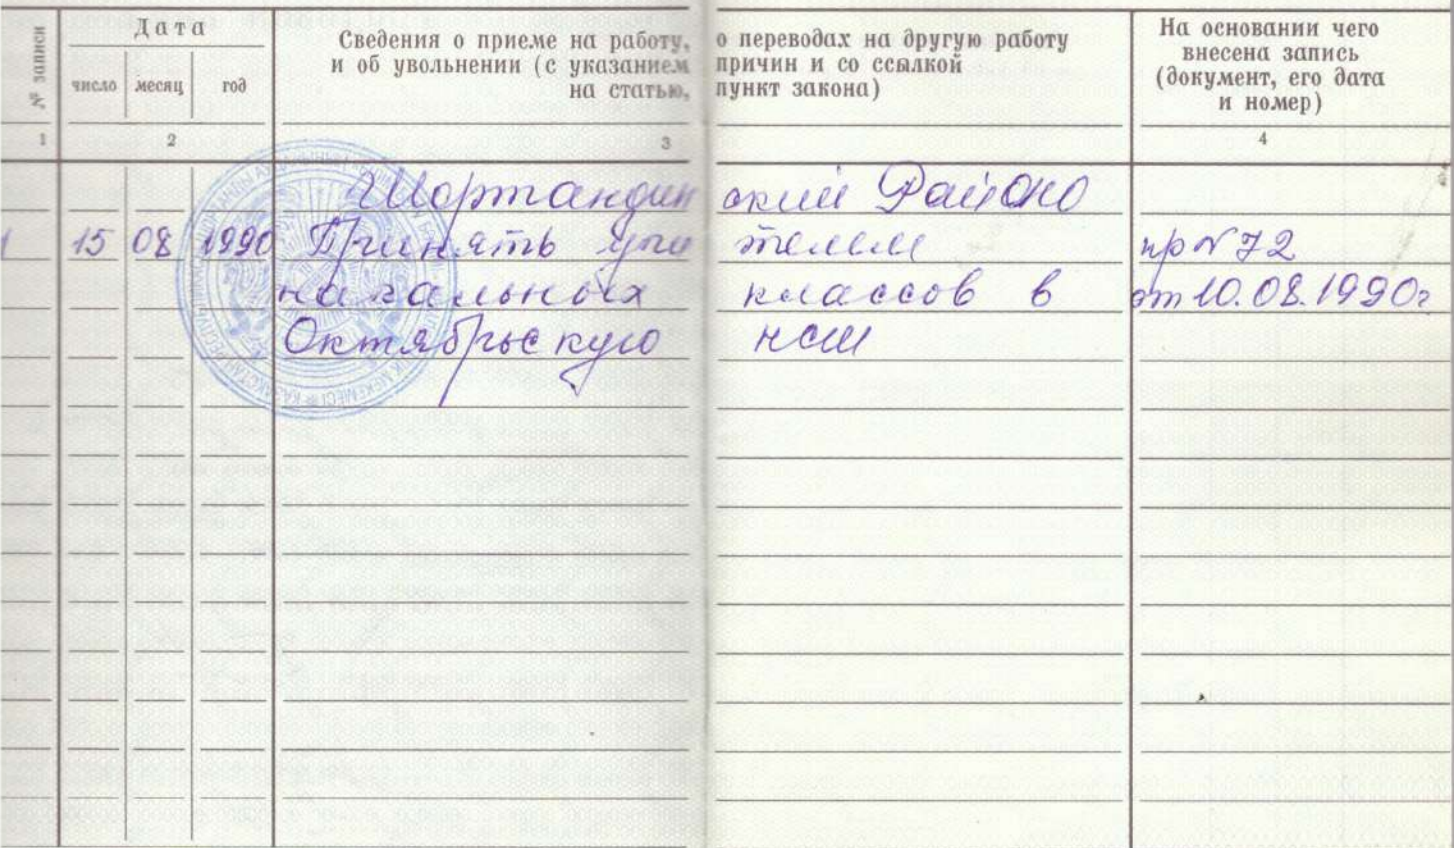 № записи
Дата
число месяц год
Сведения о приеме на работу, о переводах на другую работу
и об увольнении (с указанием причин и со ссылкой
на статью, пункт закона)
На основании чего
внесена запись
(документ, его дата
и номер)
1 2 3 4
Шортандинский РайОНО
1 15 08 1990 Принять учителем пр №72
начальных классов в от 10.08.1990г
Октябрьскую НСШ